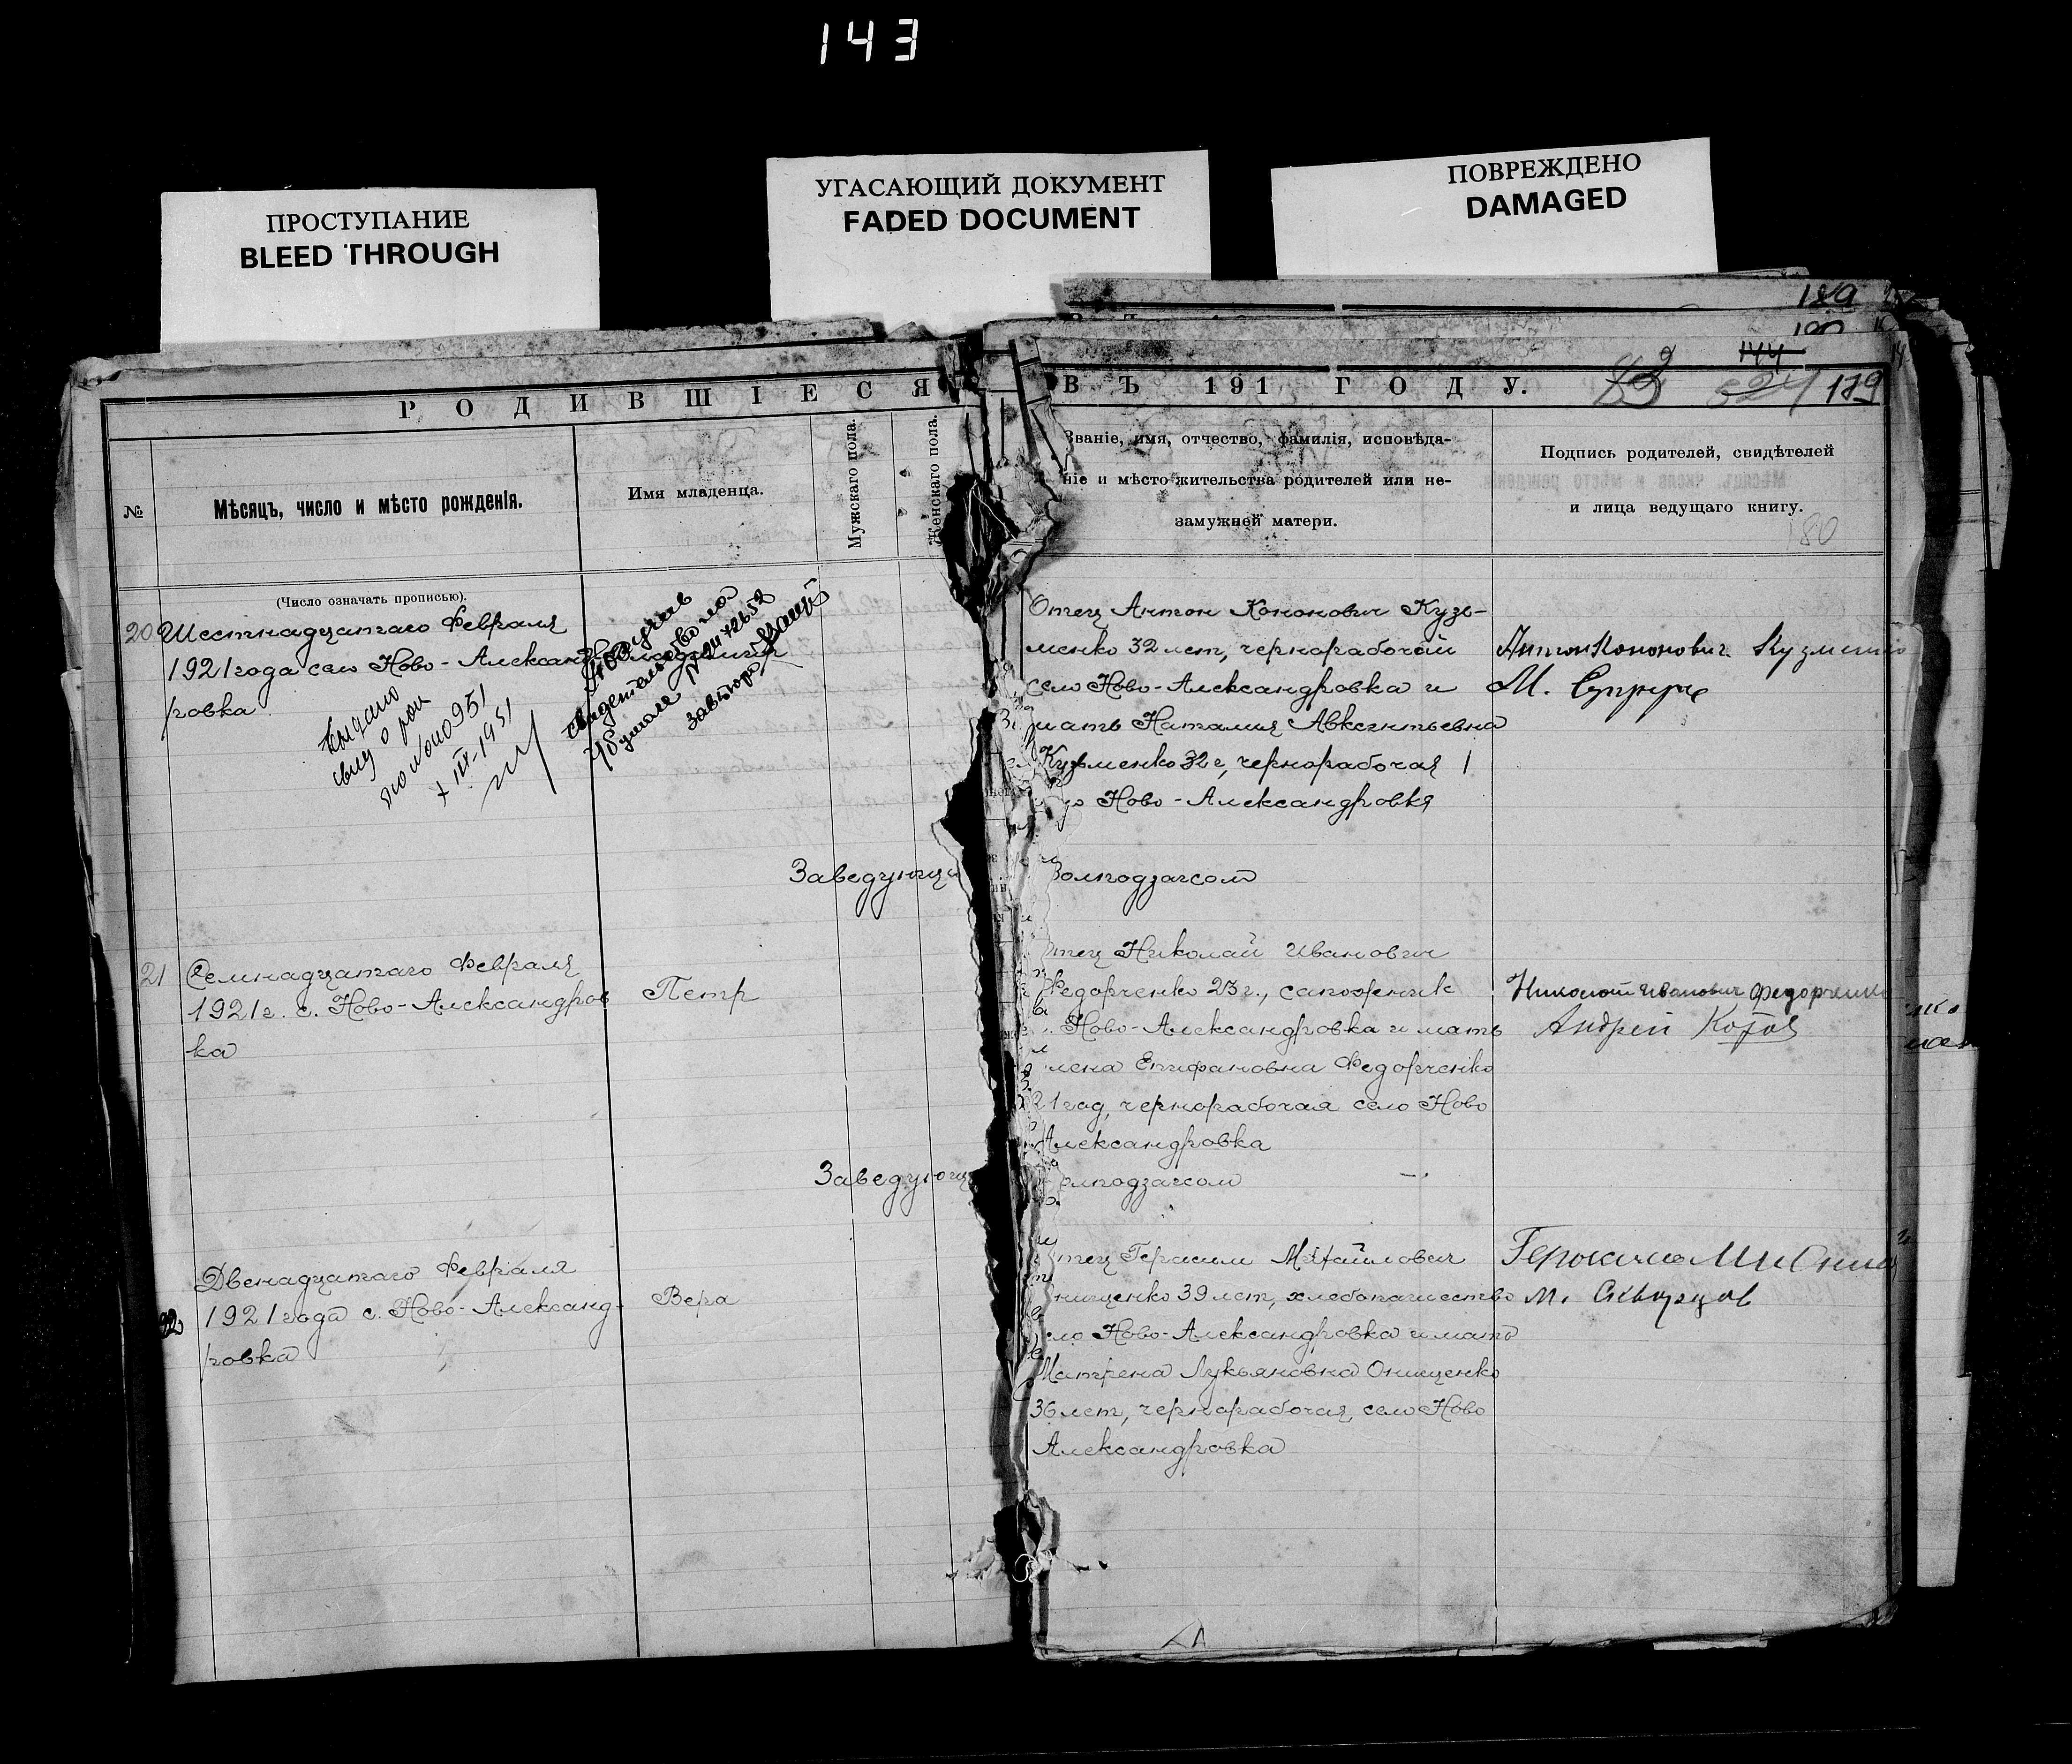 143
ПРОСТУПАНИЕ
BLEED THROUGH
УГАСАЮЩИЙ ДОКУМЕНТ
FADED DOCUMENT
ПОВРЕЖДЕНО
DAMAGED
РОДИВШІЕСЯ
№
Мѣсяцъ, число и мѣсто рожденія.
Имя младенца.
Мужскаго пола.
Женскаго пола.
(Число означать прописью).
20 Шестнадцатаго Февраля
1921 года село Ново-Александ
ровка
Выдано
свид о рож
по № 010951
III-1951
свидетельство на
Заведующи
21 Семнадцатаго Февраля
1921 г. с. Ново-Александров
ка
Петр
Заведующ
22 Двенадцатаго Февраля
1921 года с. Ново-Александ-
ровка
Вера
189
144
179
ВЪ 191 ГОДУ.
Званіе, имя, отчество, фамилія, исповѣда-
ніе и мѣсто жительства родителей или не-
замужней матери.
Подпись родителей, свидѣтелей
и лица ведущаго книгу.
180
Отец Антон Кононович Кузь-
менко 32 лет, чернорабочий
село Ново-Александровка и
мать Наталия Авксентьевна
Кузьменко 32 г, чернорабочая
Ново-Александровка
Антон Кононович Кузменко
М.
Волподзагсом
отец Николай Иванович
Федорченко 23 г., сапожник
Ново-Александровка и мать
лена Епифановна Федорченко
21 год, чернорабочая село Ново
Александровка
Николай Иванович Федорченко
Андрей Котов
олподзагсом
тец Герасим Михайлович
нищенко 39 лет, хлебопашество
ело Ново-Александровка и мать
Матрена Лукьяновна Онищенко
36 лет, чернорабочая, село Ново
Александровка
М. Скворцов